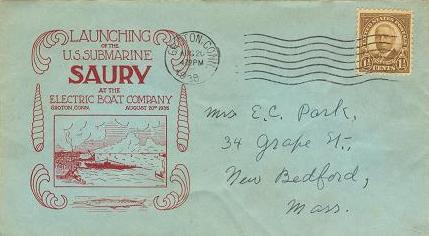 LAUNCHING
OF THE
U.S. SUBMARINE
SAURY
AT THE
ELECTRIC BOAT COMPANY
GROTON, CONN. AUGUST 20TH 1938
GROTON, CONN.
AUG 20
PM
1938
UNITED STATES POSTAGE
1½ CENTS 1½
Mrs E.C. Park,
34 Grape St.,
New Bedford,
Mass.